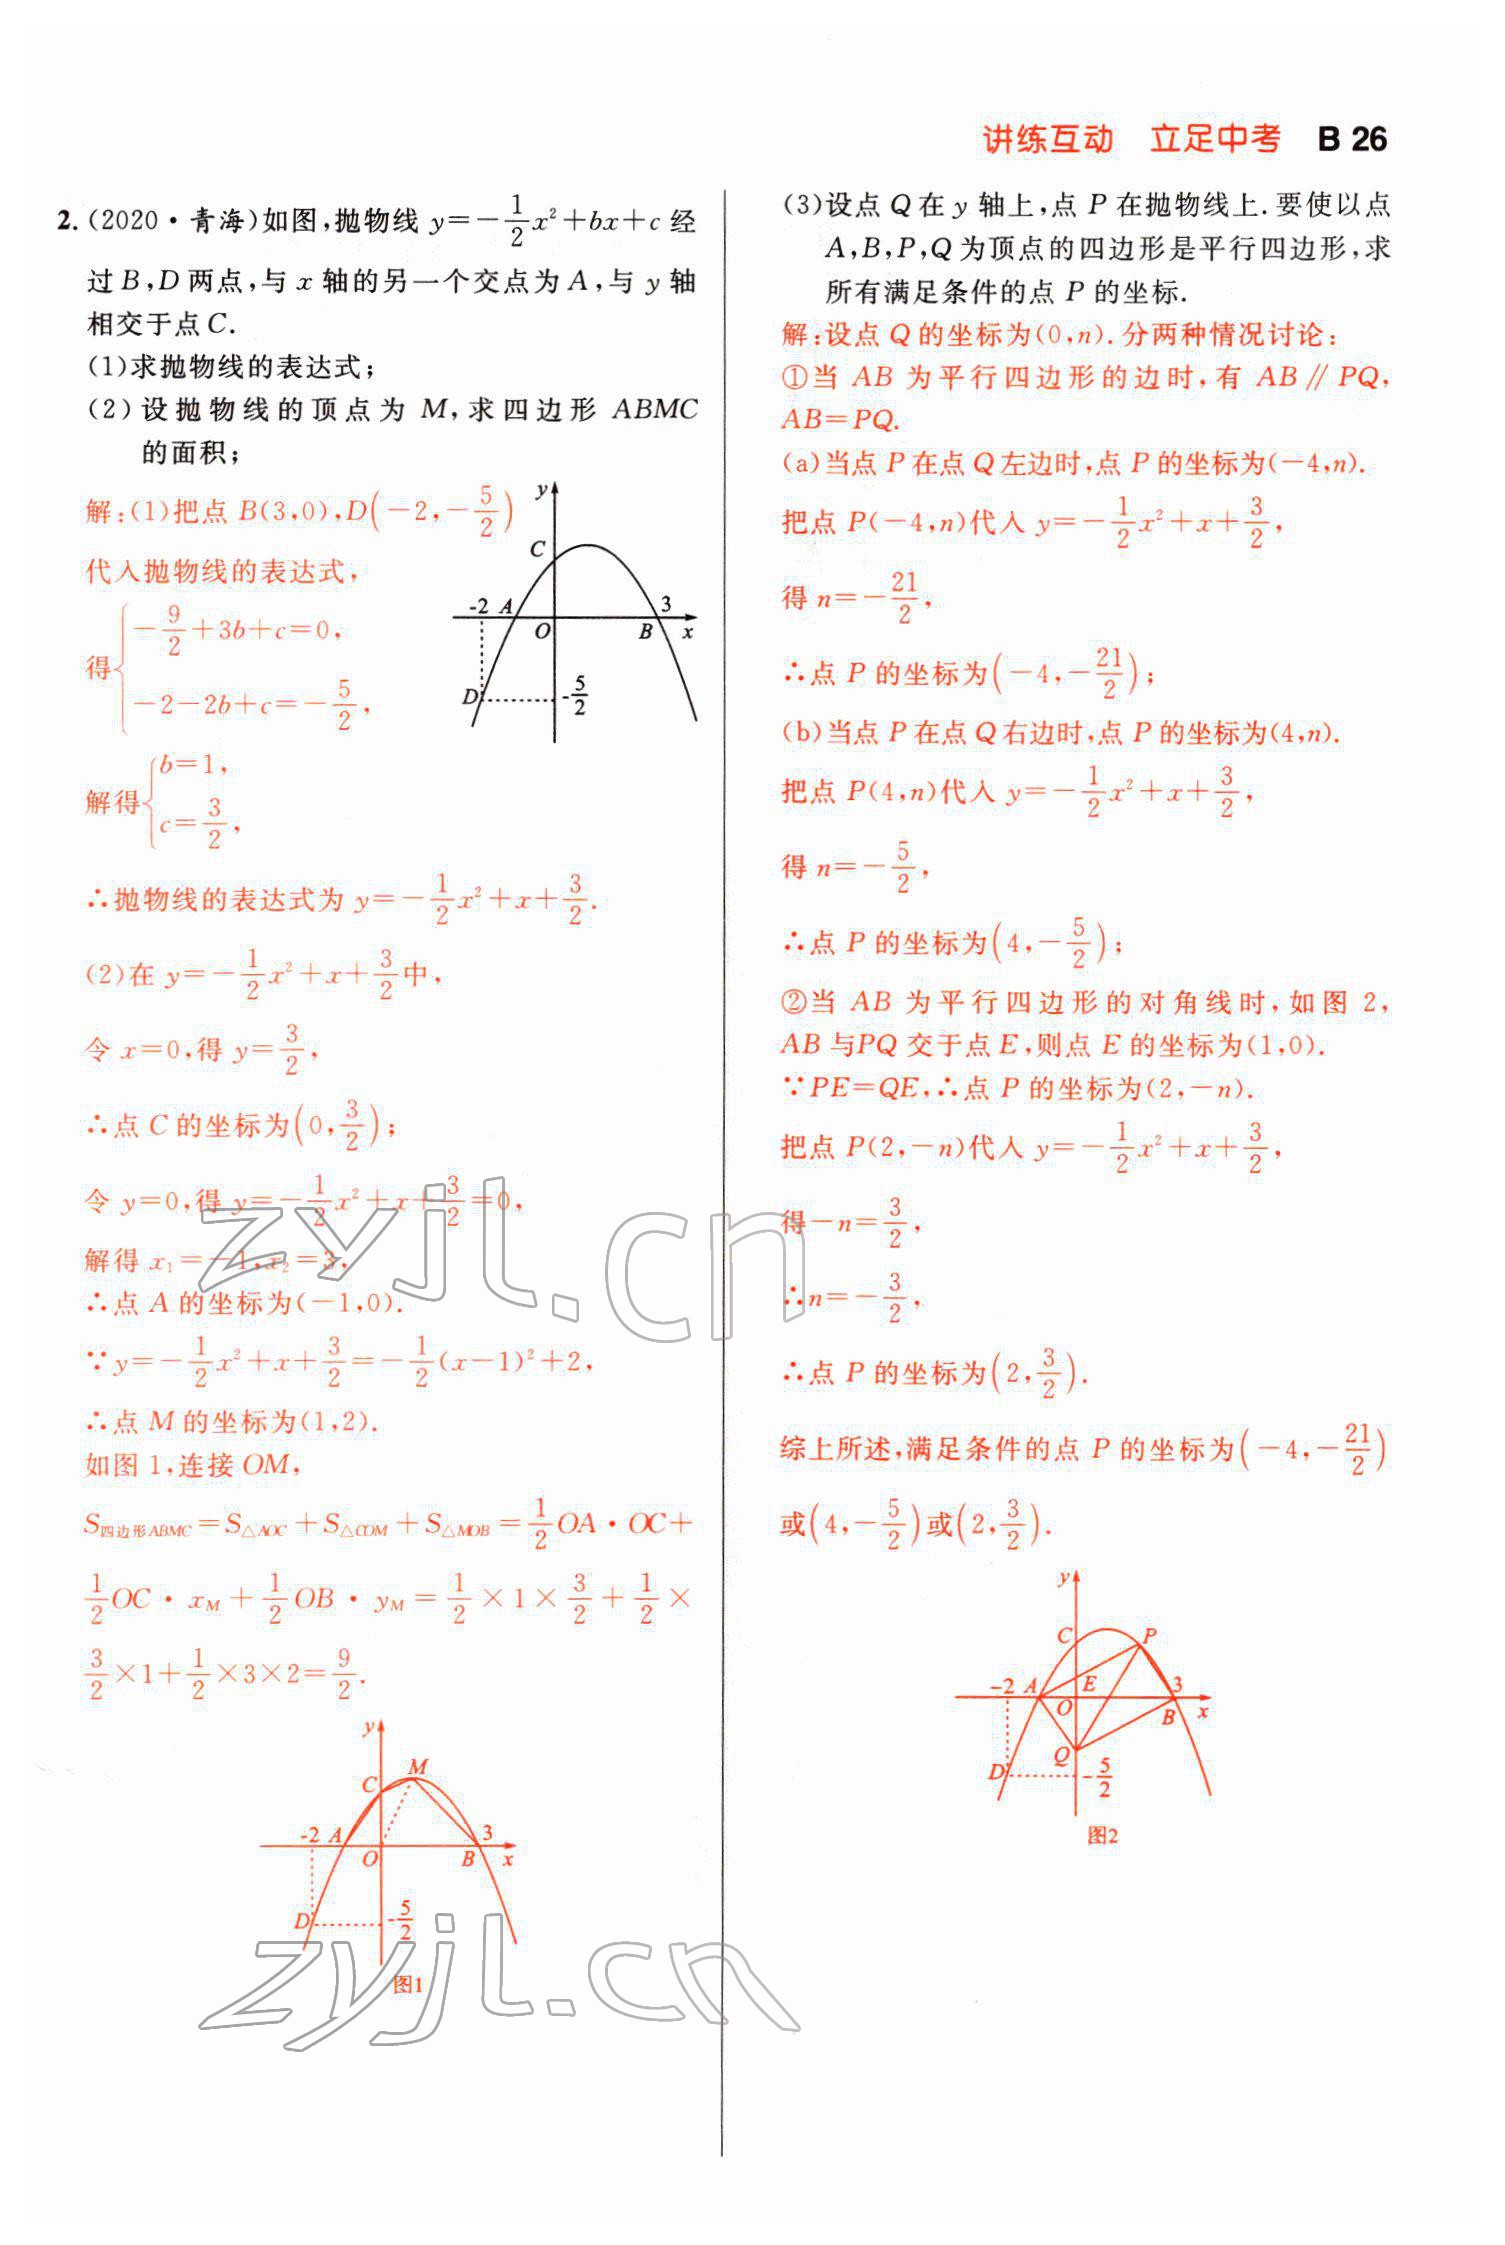 讲练互动 立足中考 B 26
2.(2020·青海)如图,抛物线 y=-1/2x²+bx+c 经
过 B,D 两点,与 x 轴的另一个交点为 A,与 y 轴
相交于点 C.
(1)求抛物线的表达式;
(2)设抛物线的顶点为 M,求四边形 ABMC
的面积;
解:(1)把点 B(3,0),D(-2,-5/2)
代入抛物线的表达式,
得{-9/2+3b+c=0,
-2-2b+c=-5/2,
解得{b=1,
c=3/2,
∴抛物线的表达式为 y=-1/2x²+x+3/2.
(2)在 y=-1/2x²+x+3/2中,
令 x=0,得 y=3/2,
∴点 C 的坐标为(0,3/2);
令 y=0,得 y=-1/2x²+x+3/2=0,
解得 x₁=-1,x₂=3,
∴点 A 的坐标为(-1,0).
∵y=-1/2x²+x+3/2=-1/2(x-1)²+2,
∴点 M 的坐标为(1,2).
如图 1,连接 OM,
S四边形ABMC=S△AOC+S△COM+S△MOB=1/2OA·OC+
1/2OC·xM+1/2OB·yM=1/2×1×3/2+1/2×
3/2×1+1/2×3×2=9/2.
y
C
-2 A 3
O B x
D -5/2
y
M
C
-2 A 3
O B x
D -5/2
图1
(3)设点 Q 在 y 轴上,点 P 在抛物线上.要使以点
A,B,P,Q 为顶点的四边形是平行四边形,求
所有满足条件的点 P 的坐标.
解:设点 Q 的坐标为(0,n).分两种情况讨论:
①当 AB 为平行四边形的边时,有 AB∥PQ,
AB=PQ.
(a)当点 P 在点 Q 左边时,点 P 的坐标为(-4,n).
把点 P(-4,n)代入 y=-1/2x²+x+3/2,
得 n=-21/2,
∴点 P 的坐标为(-4,-21/2);
(b)当点 P 在点 Q 右边时,点 P 的坐标为(4,n).
把点 P(4,n)代入 y=-1/2x²+x+3/2,
得 n=-5/2,
∴点 P 的坐标为(4,-5/2);
②当 AB 为平行四边形的对角线时,如图 2,
AB 与PQ 交于点 E,则点 E 的坐标为(1,0).
∵PE=QE,∴点 P 的坐标为(2,-n).
把点 P(2,-n)代入 y=-1/2x²+x+3/2,
得-n=3/2,
∴n=-3/2,
∴点 P 的坐标为(2,3/2).
综上所述,满足条件的点 P 的坐标为(-4,-21/2)
或(4,-5/2)或(2,3/2).
y
C P
-2 A E 3
O B x
Q
D -5/2
图2
zyjl.cn
zyjl.cn